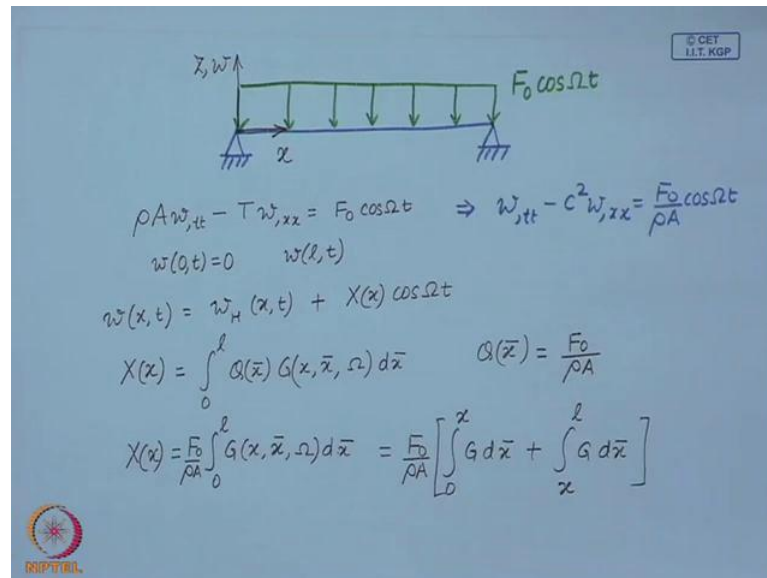 © CET
I.I.T. KGP
z, w
F₀ cos Ωt
x
ρA w,tt − T w,xx = F₀ cos Ωt ⇒ w,tt − c² w,xx = F₀/ρA cos Ωt
w(0,t) = 0 w(l,t)
w(x,t) = w_H (x,t) + X(x) cos Ωt
X(x) = ∫₀^l Q(x̄) G(x, x̄, Ω) dx̄ Q(x̄) = F₀/ρA
X(x) = F₀/ρA ∫₀^l G(x, x̄, Ω) dx̄ = F₀/ρA [ ∫₀^x G dx̄ + ∫ₓ^l G dx̄ ]
NPTEL